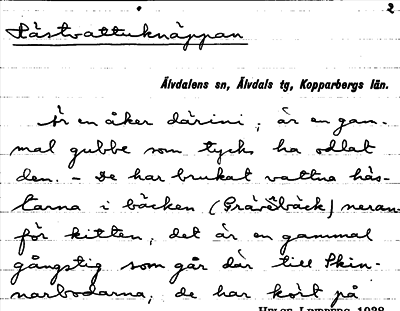 2
Hästvattuknäppan
Älvdalens sn, Älvdals tg, Kopparbergs län.
Är en åker därini, är en gam-
mal gubbe som tycks ha odlat
den. - De har brukat vattna häs-
tarna i bäcken (Gråvĕlbäck) neran-
för kitten, det är en gammal
gångstig som går där till Skin-
narbodarna, de har kört på
HELGE LINDBERG 1938